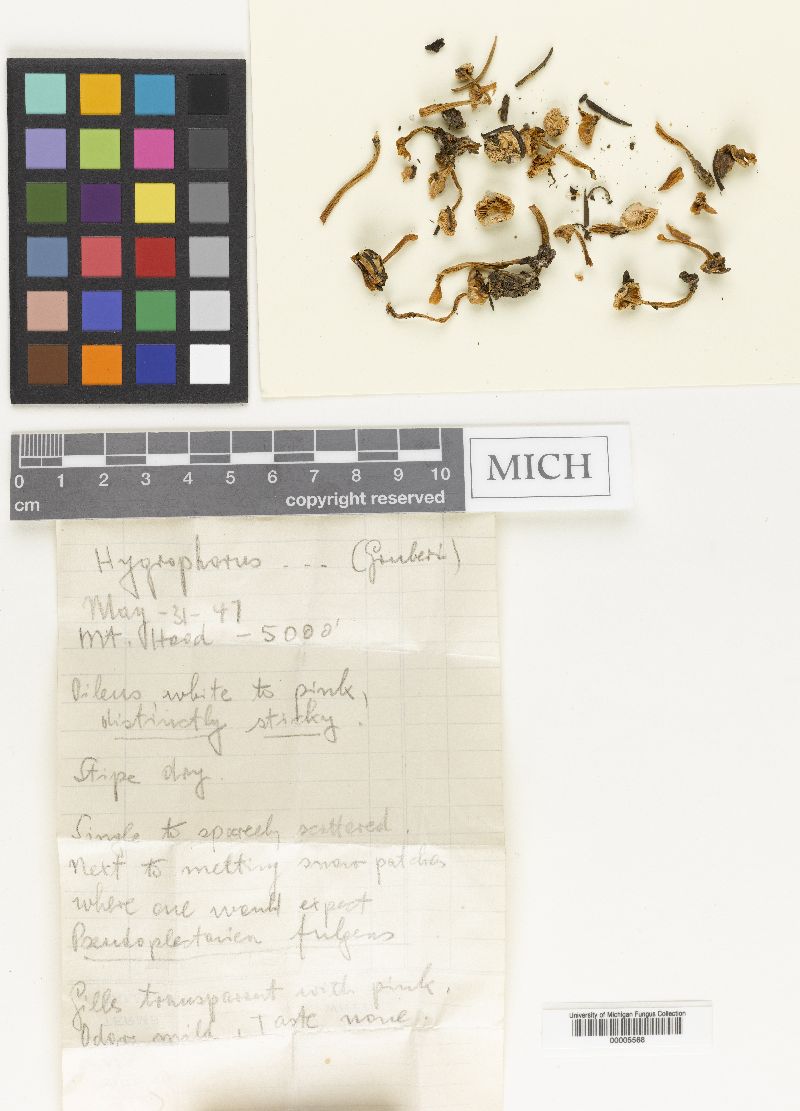 0 1 2 3 4 5 6 7 8 9 10
cm
copyright reserved
MICH
Hygrophorus - - - (Gruberi)
May -31- 47
Mt. Hood - 5000'
Pileus white to pink,
distinctly sticky.
Stipe dry.
Single to sparcely scattered.
Next to melting snow patches
where one would expect
Pseudoplectania fulgens
Gills transparent with pink.
Odor mild. Taste none.
University of Michigan Fungus Collection
00005568